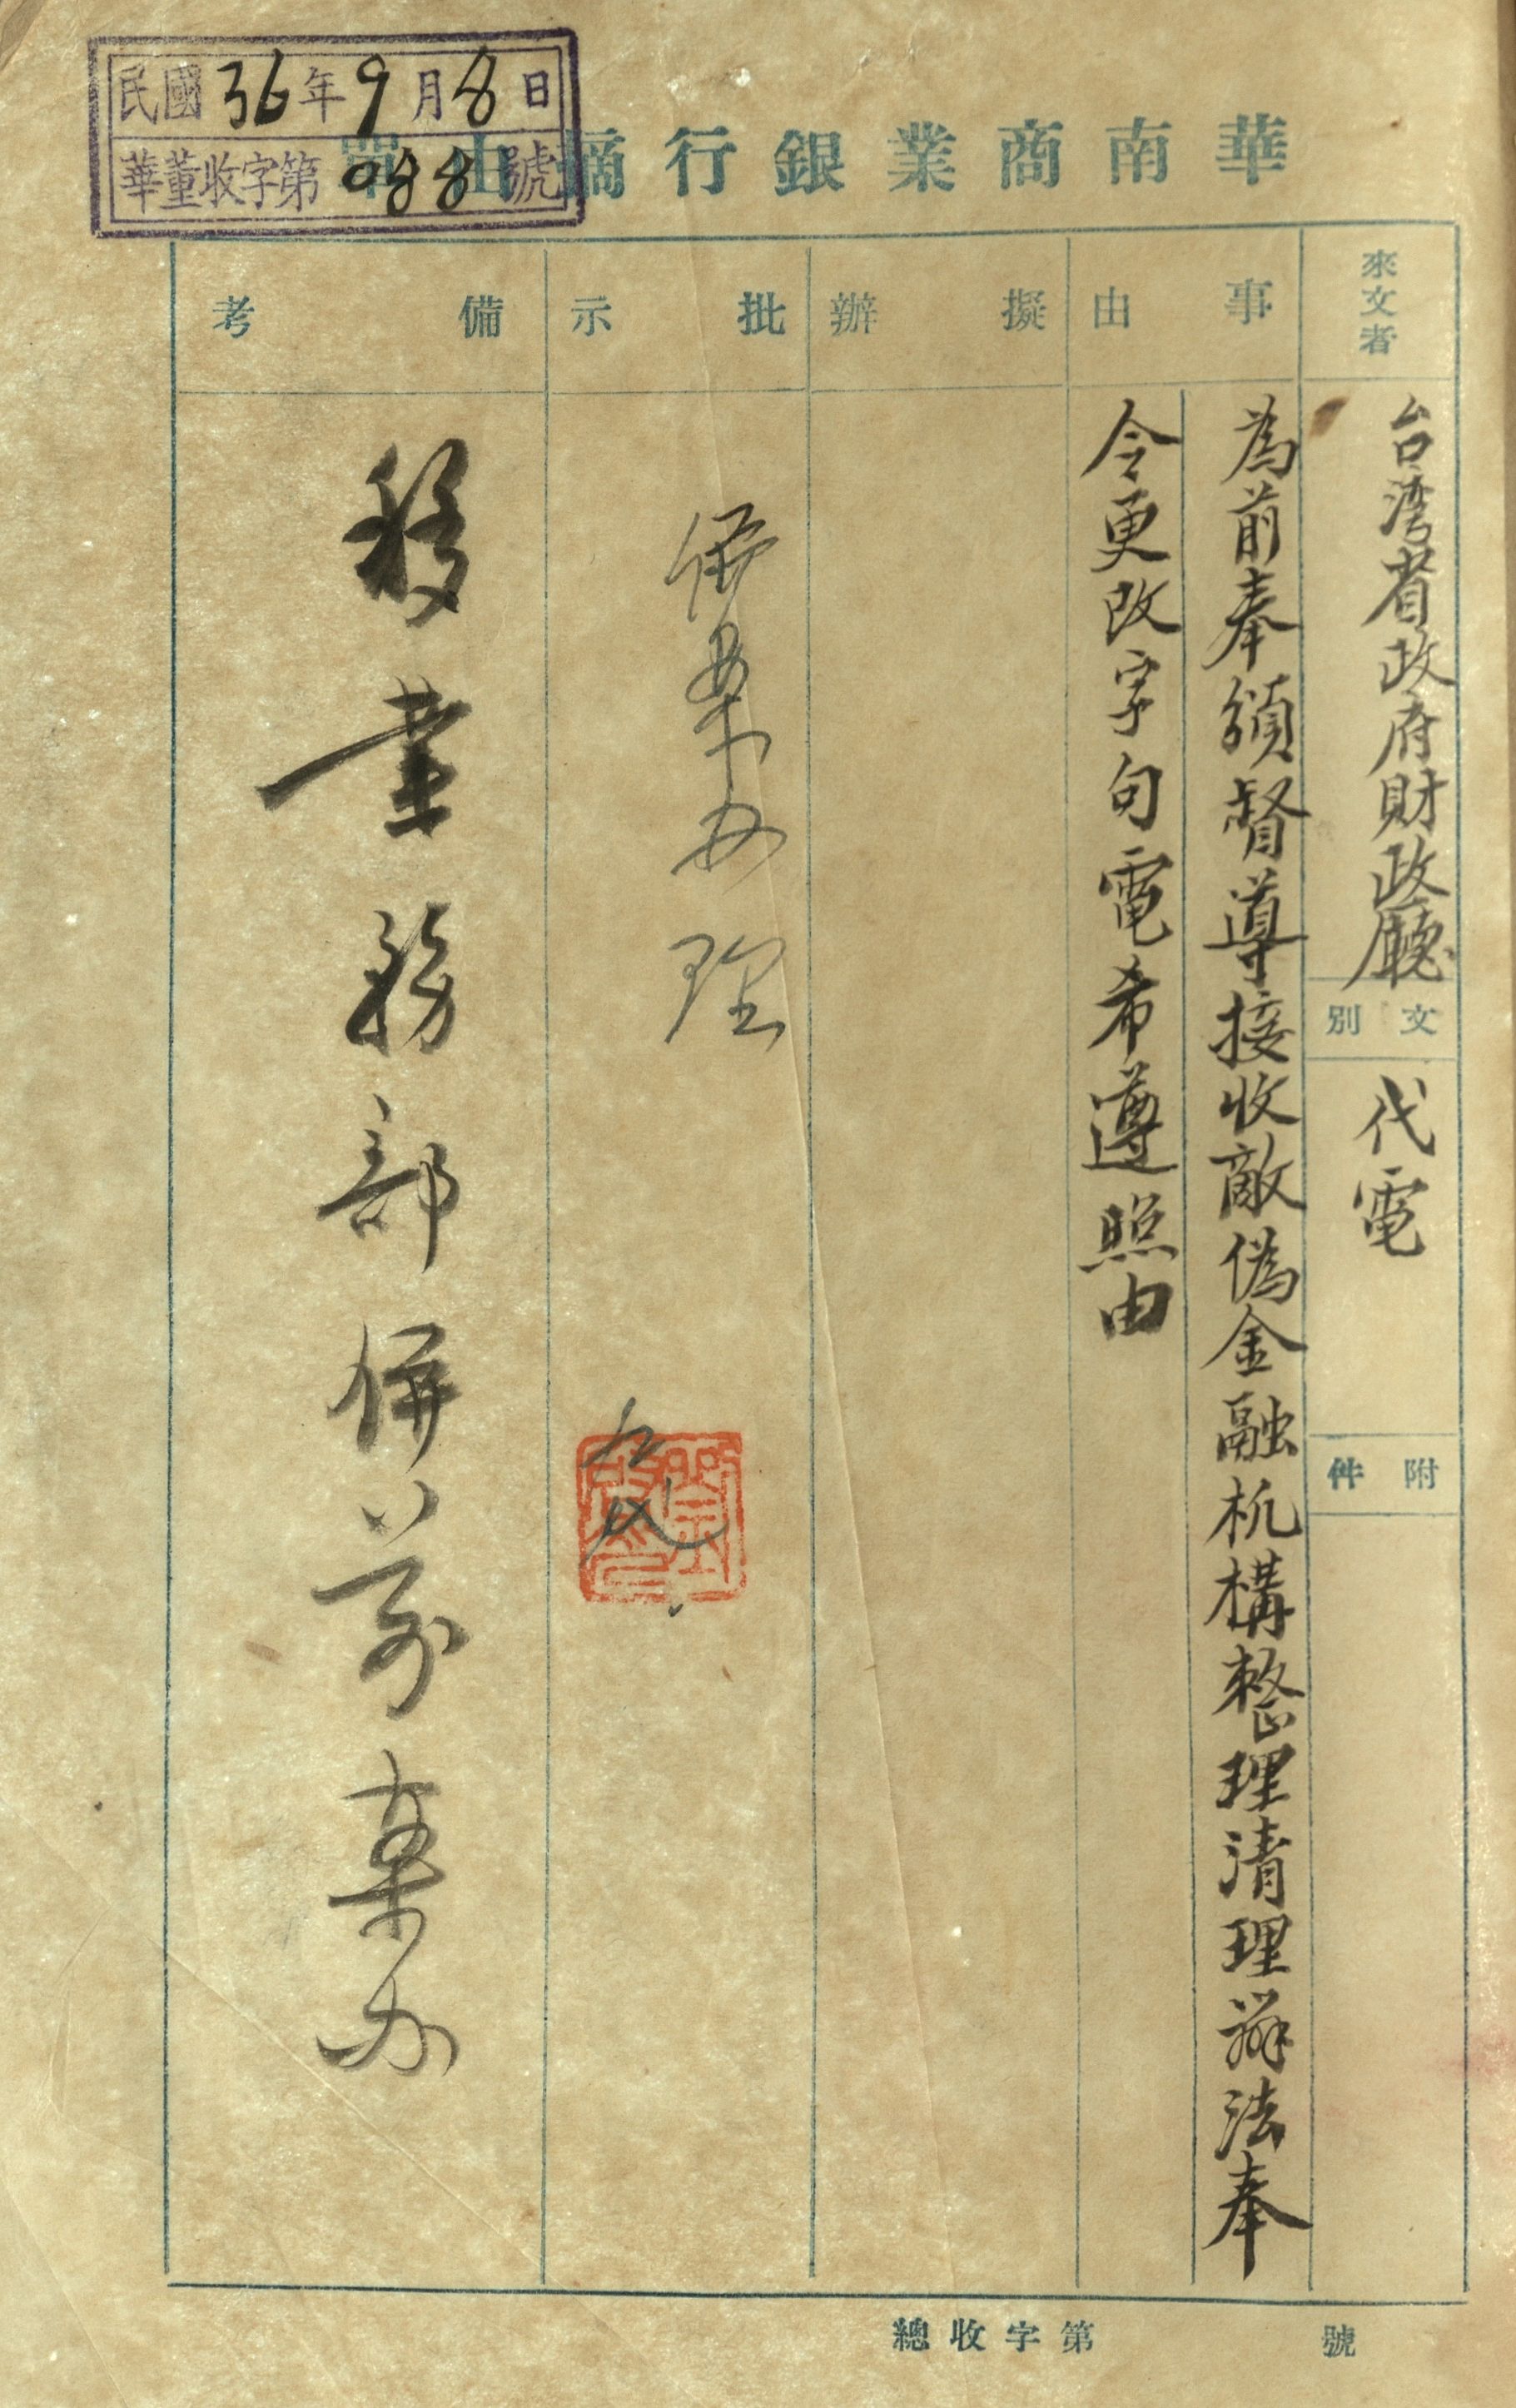 華南商業銀行摘由單
民國36年9月8日
華董收字第088號
來文者
台湾省政府財政廳
文別
代電
附件
事由
為前奉頒督導接收敵偽金融机構整理清理辦法奉
令更改字句電希遵照由
擬辦
批示
併案办理
備考
移業務部併前案办
總收字第 號